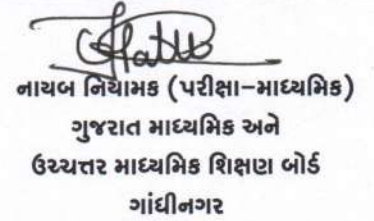 નાયબ નિયામક (પરીક્ષા-માધ્યમિક)
ગુજરાત માધ્યમિક અને
ઉચ્ચત્તર માધ્યમિક શિક્ષણ બોર્ડ
ગાંધીનગર